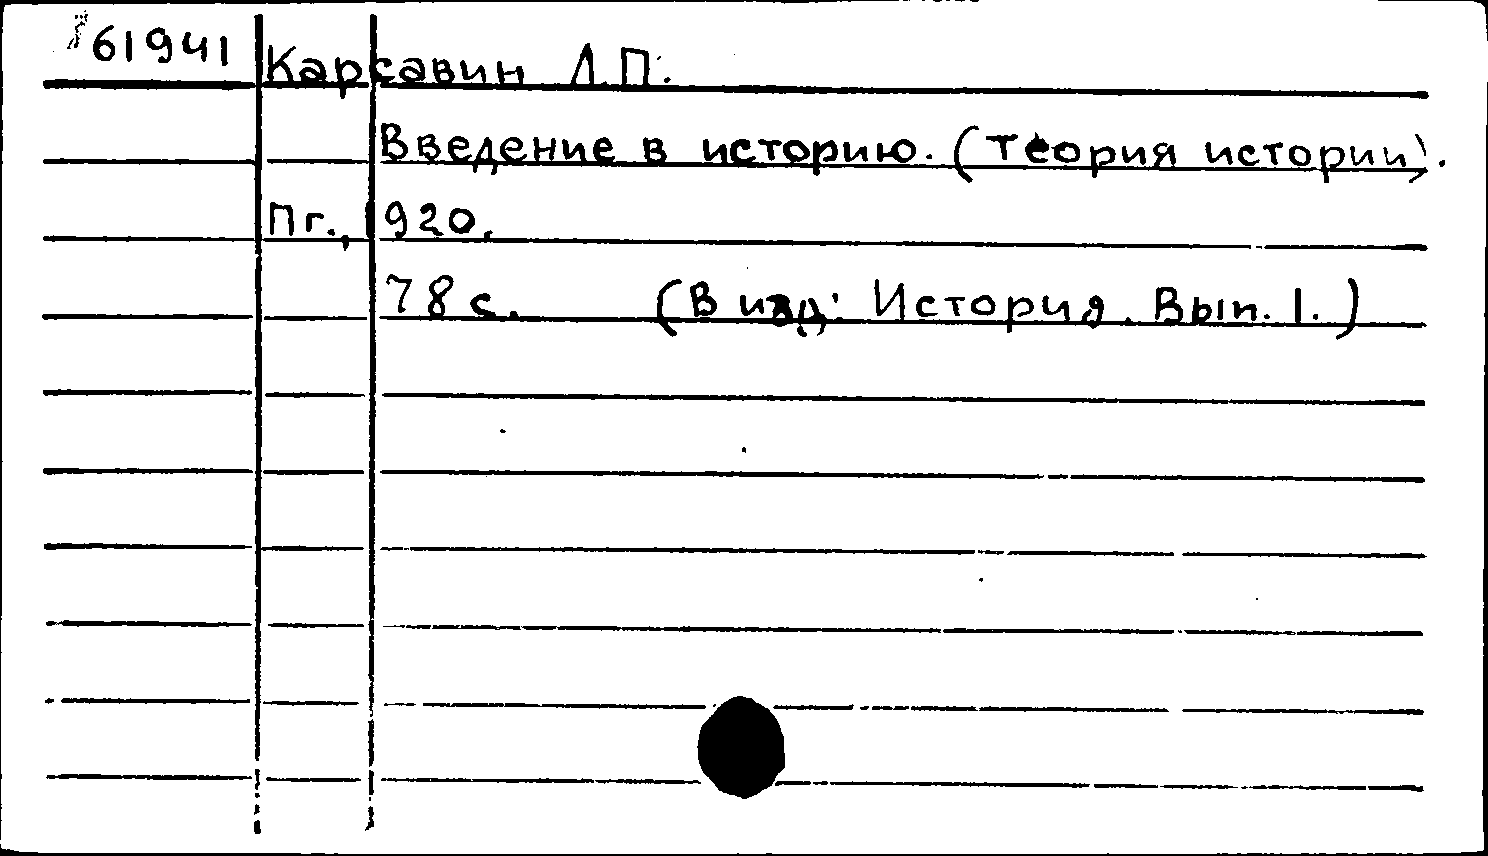 61941
Карсавин Л.П.
Введение в историю. (Теория истории).
Пг., 1920.
78 с. (В изд: История. Вып. 1.)